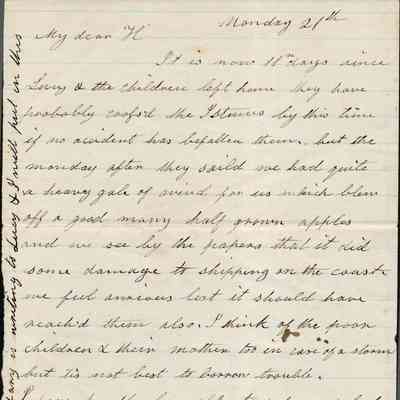 Monday 21th
My dear "H"
It is now 11 days since
Lucy & the children left home they have
probably cross'd the Istmus by this time
if no acident has befallen them. but the
monday after they saild we had quite
a heavy gale of wind for us which blew
off a good many half grown apples
and we see by the papers that it did
some damage to shipping on the coast
we feel anxious lest it should have
reach'd them also. I think of the poor
children & their mother too in case of a storm
but tis not best to borrow trouble.
is writing to Lucy & I will put in this